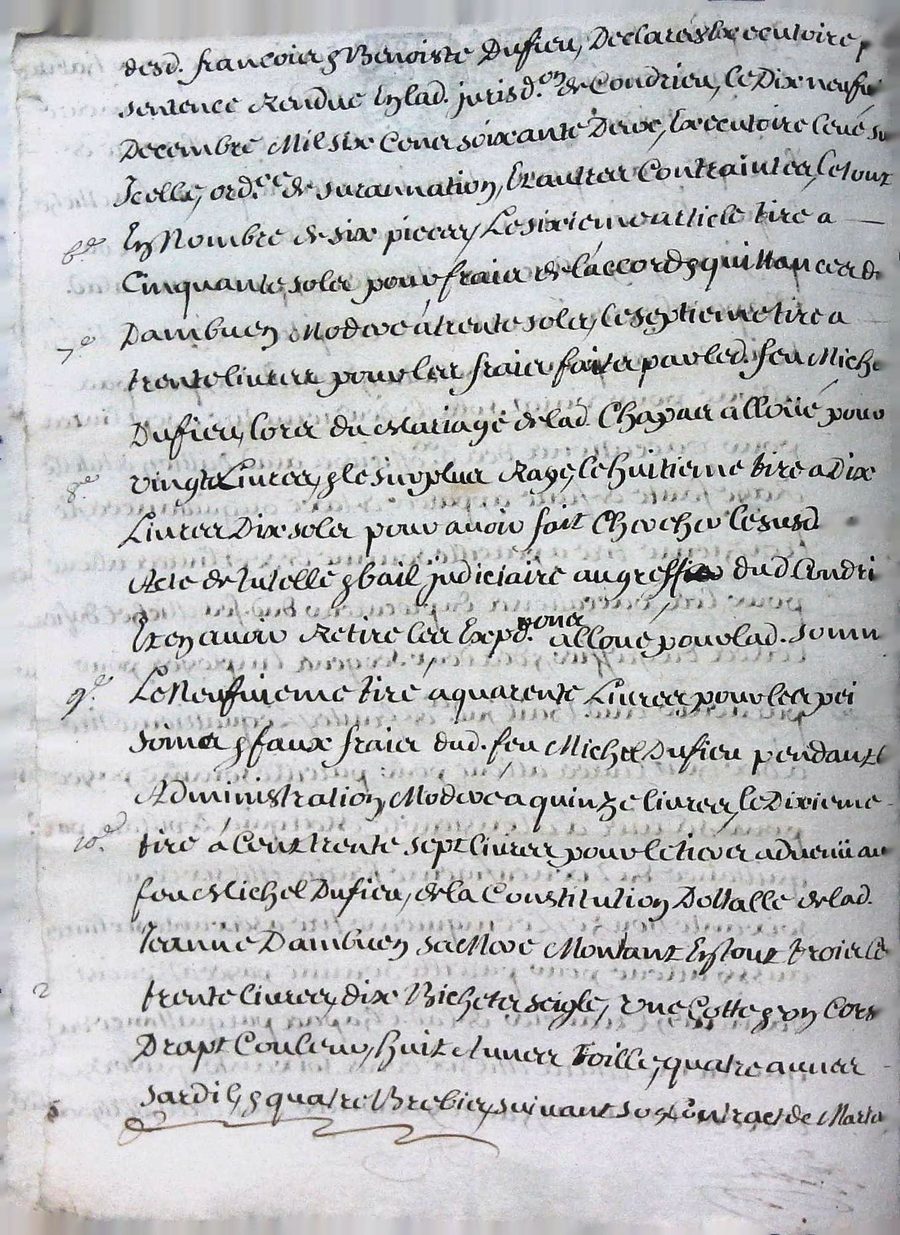 desd. francois & Benoiste Dufieu, Declarées executoire
sentence Rendue En lad. jurisd.on de Condrieu, le Dix neufe
Decembre Mil six Cens soixante Deux, Executoire levé su
Icelle, ord.ce de surannation, Et autres Contraintes, le tout
6.e En Nombre de six pieces, Le sixieme article tiré a
Cinquante sols pour frais de l'accord & quittances d
Dambuen Moderé a trente sols, le septieme tiré a
7.e trente livres pour les frais faits par led. feu Miche
Dufieu, lors du Mariage de lad. Chapas alloüé pour
8.e vingt Livres, & le surplus Rayé, le huitieme tiré a Dix
Livres Dix sols pour avoir fait Chercher le susd.
Acte de tutelle & bail judiciaire au greffe dud. Condri
Et en avoir Retiré les Exped. pour alloué pour lad. somm
9.e Le Neufvieme tiré a quarente Livres pour les pei
somes & faux frais dud. feu Michel Dufieu pendant l
Administration Moderé a quinze livres, le Dixieme
10.e tiré a Cent trente sept livres pour le tiers advenü au
feu Michel Dufieu, de la Constitution Dottalle de lad.
Jeanne Dambuen sa Mere Montant En tout trois Ce
trente livres, dix Bichets seigle, une Cotte & un Cors
Drapt Couleur, huit Aunes Toille, quatre aunes
sardil, & quatre Brebis, suivant son Contract de Maria